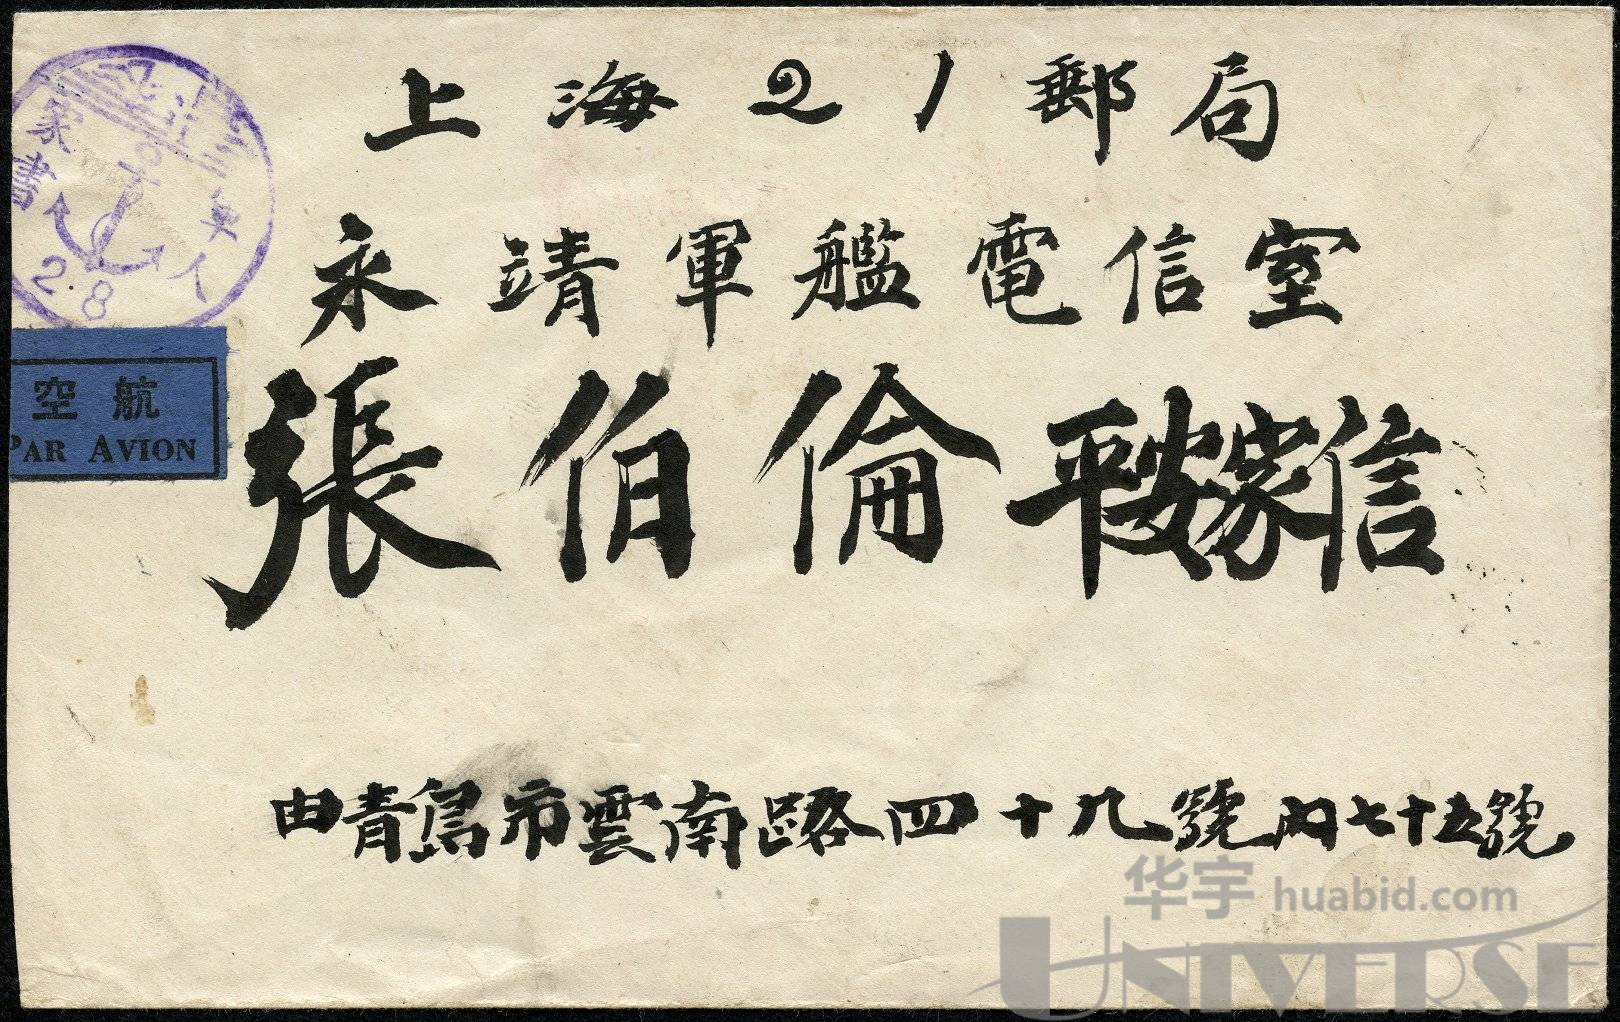 上海21郵局
永靖軍艦電信室
張伯倫 平安家信
由青島市雲南路四十九號內七十五號
家書
軍人
2.8
空航
PAR AVION
华宇 huabid.com
UNIVERSE